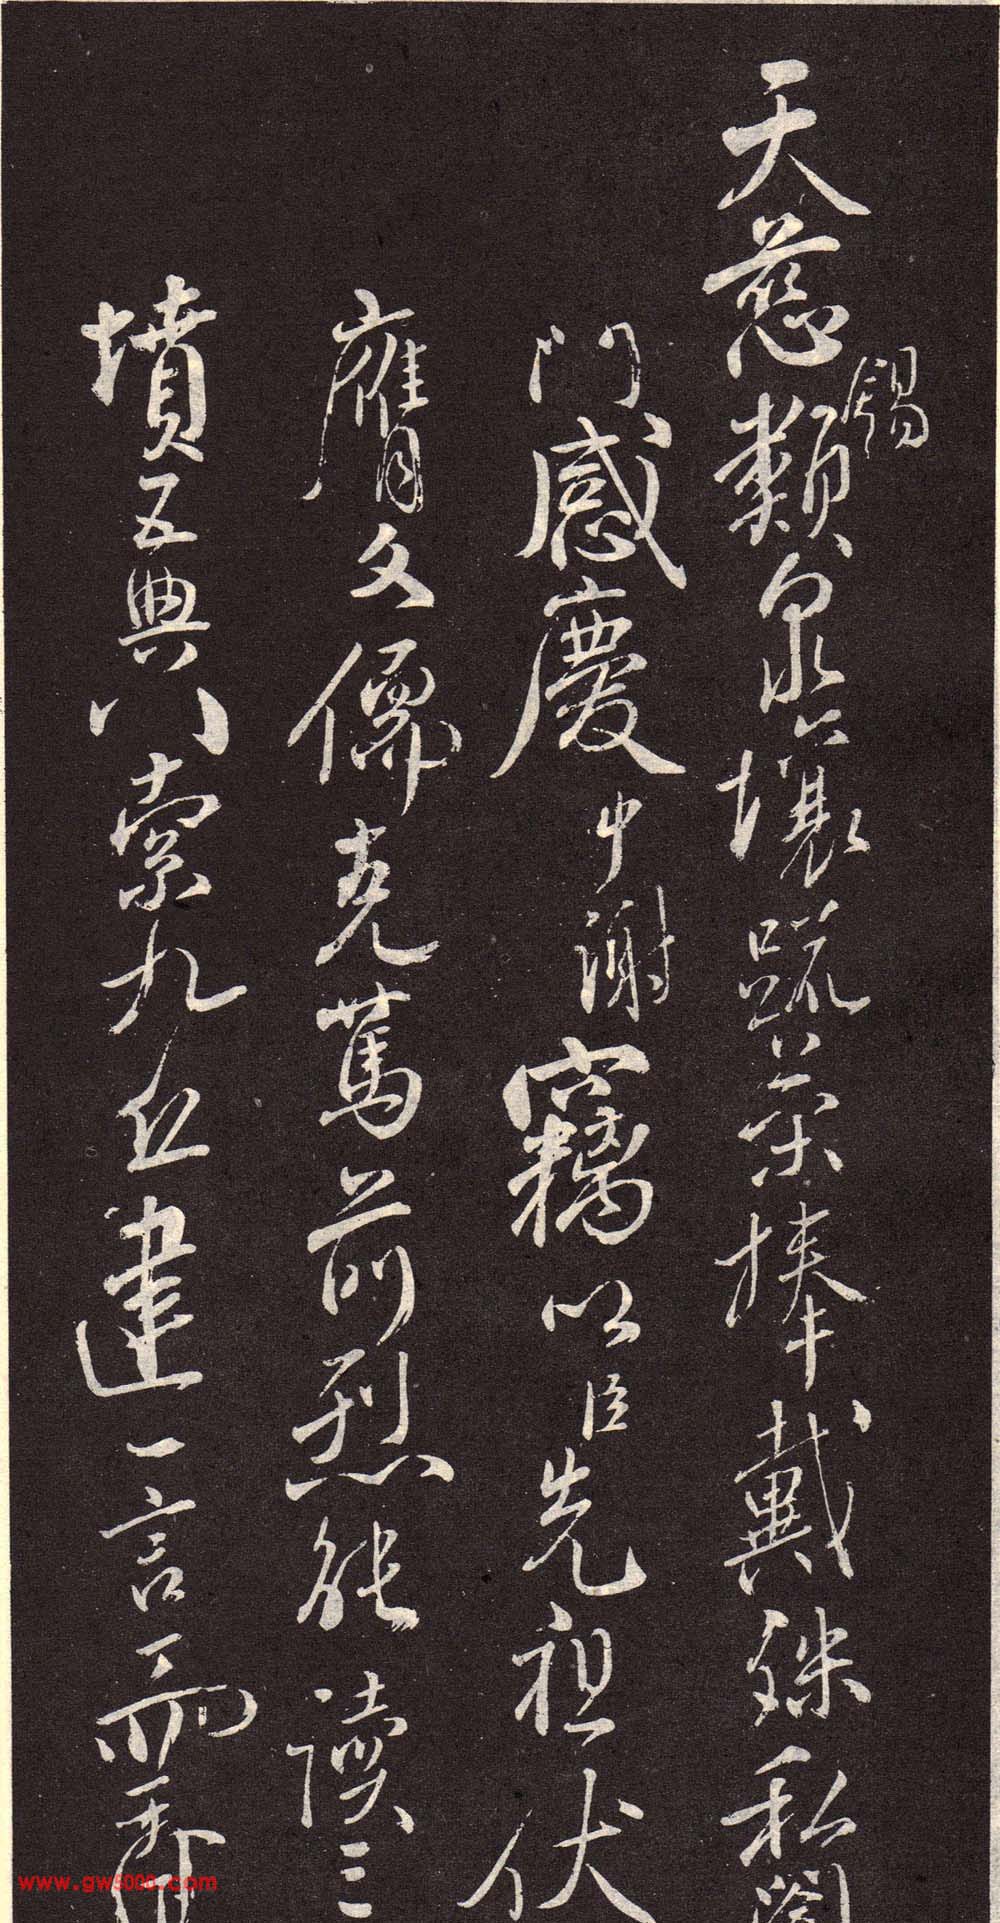 天慈錫類泉壤疏榮捧戴殊私闔
門感慶中謝竊以臣先祖伏
膺文儒克篤前烈能讀三
墳五典八索九丘建一言而
www.gw5000.com